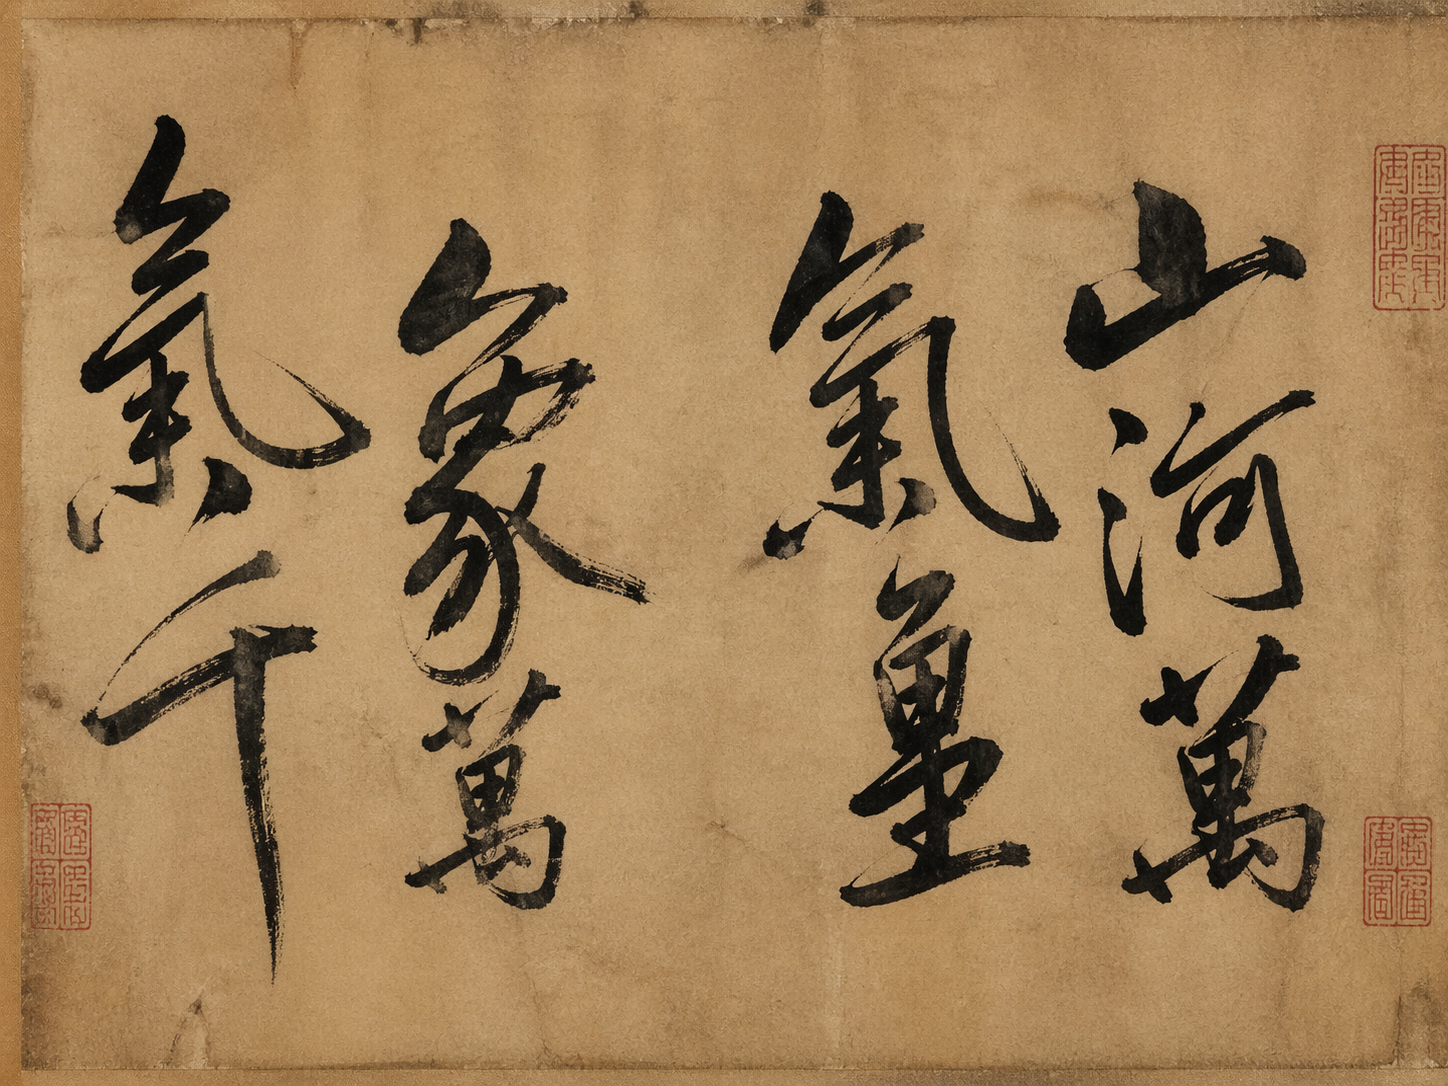 山河萬
氣量
象萬
氣千